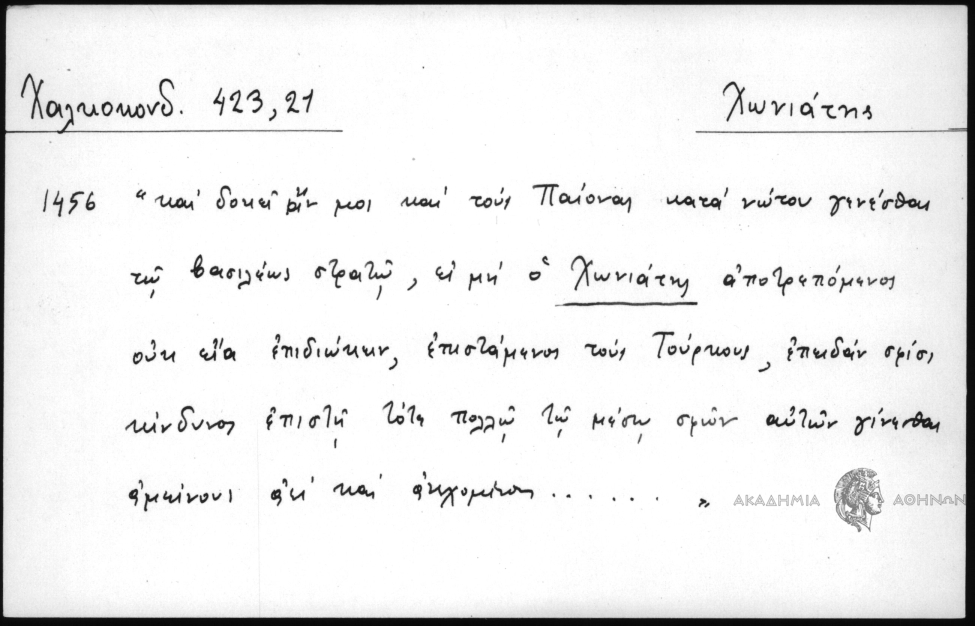 Χαλκοκονδ. 423,21
Χωνιάτης
1456 "καὶ δοκεῖ ἄν μοι καὶ τοὺς Παίονας κατὰ νώτου γενέσθαι
τῷ βασιλέως στρατῷ, εἰ μὴ ὁ Χωνιάτης ἀποτρεπόμενος
οὐκ εἴα ἐπιδιώκειν, ἐπιστάμενος τοὺς Τούρκους, ἐπειδὰν σφίσι
κίνδυνος ἐπιστῇ τότε πολλῷ τῷ μέσῳ σφῶν αὐτῶν γίνεσθαι
ἀμείνους ἀεὶ καὶ ...... "
ΑΚΑΔΗΜΙΑ ΑΘΗΝΩΝ